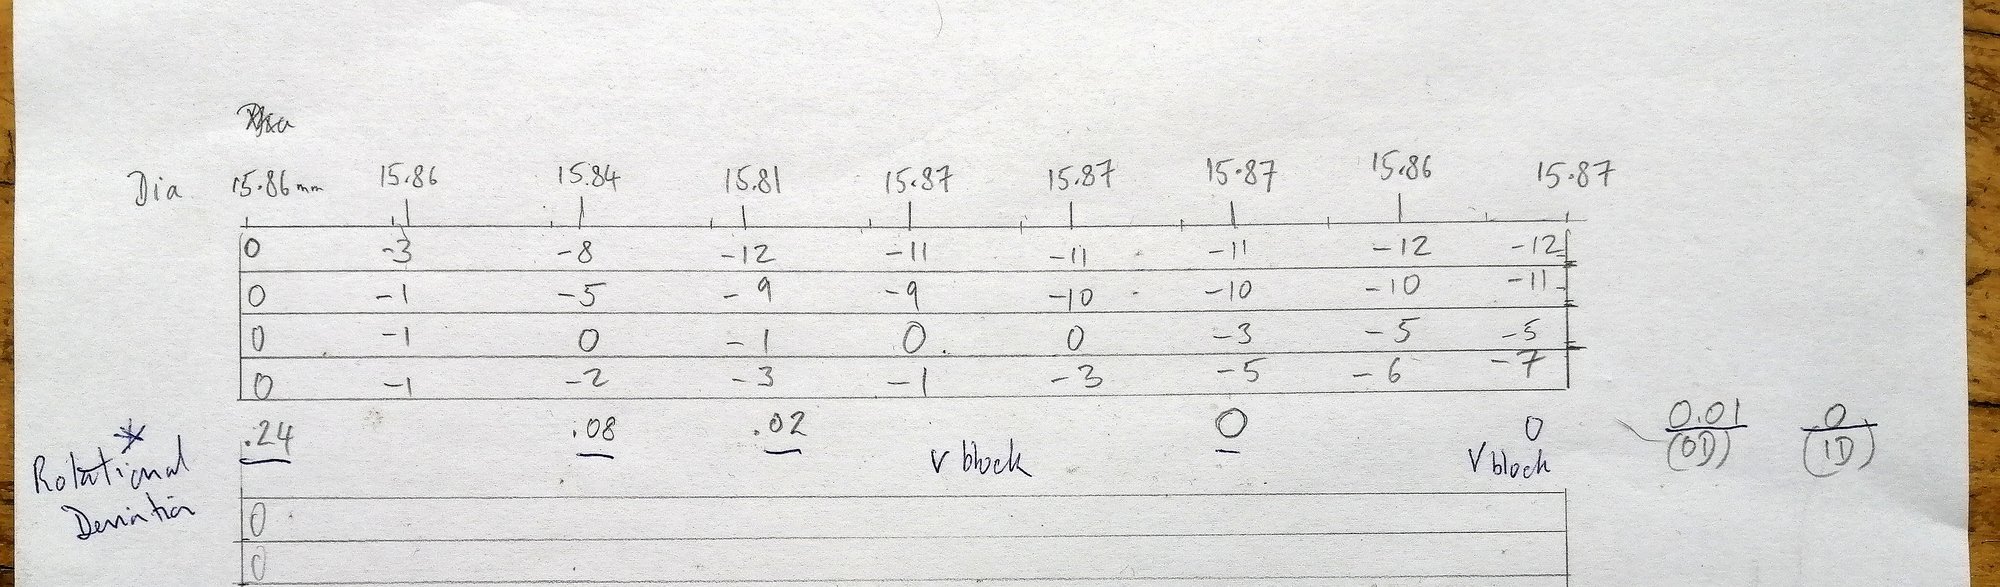 Dia 15.86mm 15.86 15.84 15.81 15.87 15.87 15.87 15.86 15.87
0 -3 -8 -12 -11 -11 -11 -12 -12
0 -1 -5 -9 -9 -10 -10 -10 -11
0 -1 0 -1 0 0 -3 -5 -5
0 -1 -2 -3 -1 -3 -5 -6 -7
* .24 .08 .02 0 0 0.01 0
Rotational V block V block (OD) (ID)
Deviation
0
0